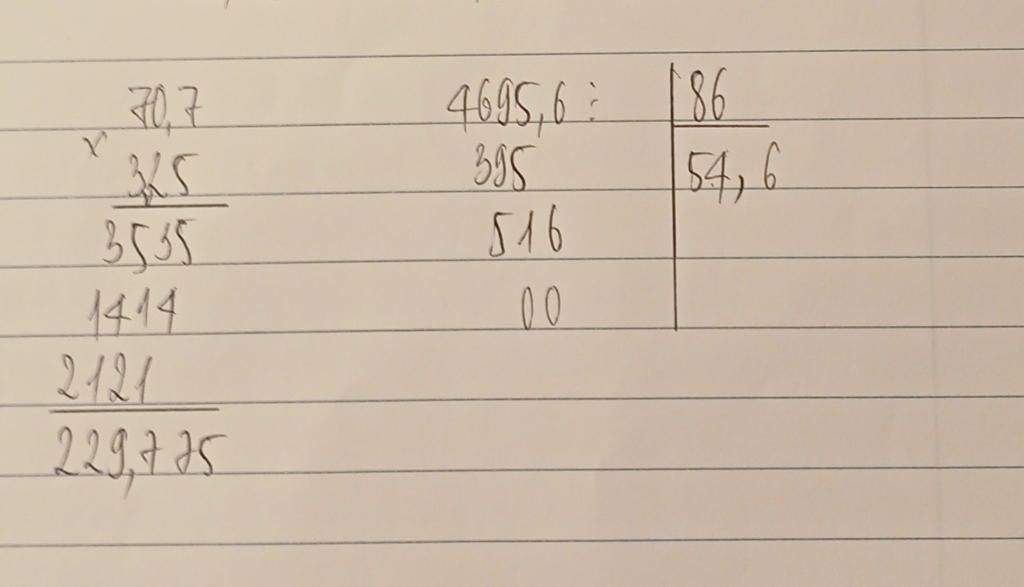 70,7
x
3,25
3535
1414
2121
229,775
4695,6 : 86
395 54,6
516
00